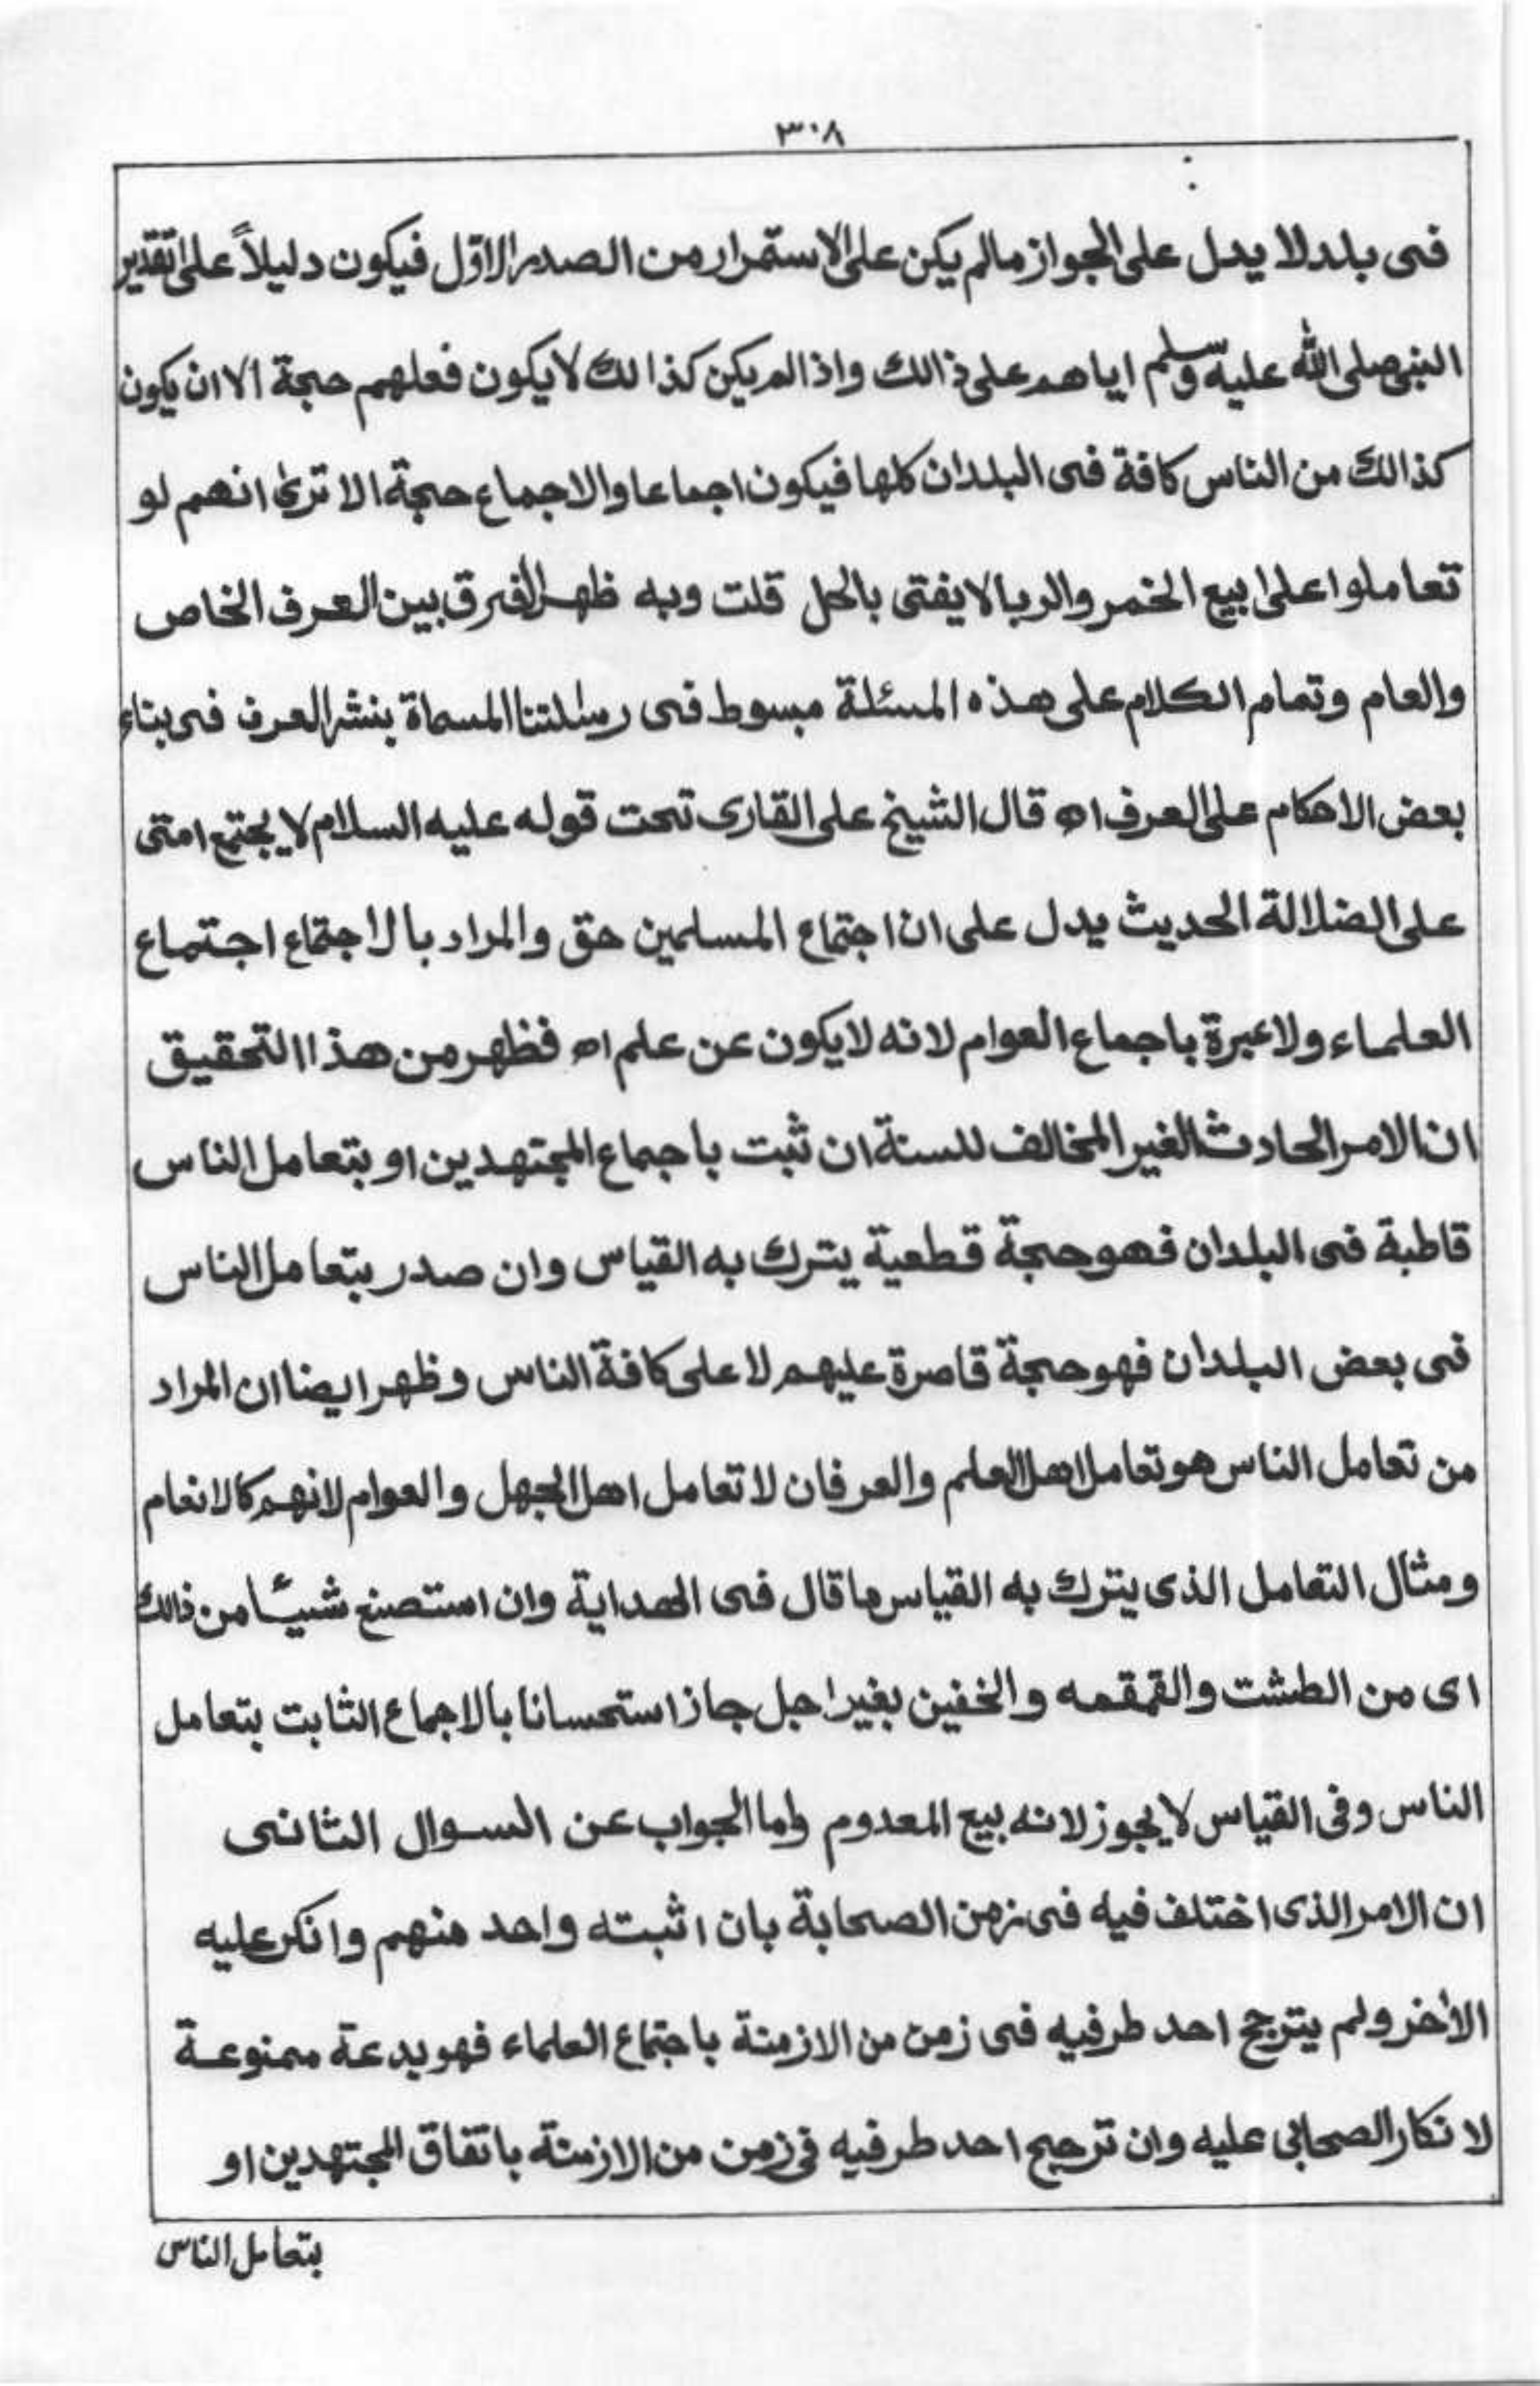 ٣٠٨
فى بلد لا يدل على الجواز مالم يكن على الاستمرار من الصدر الاوّل فيكون دليلاً على تقدير
النبى صلى الله عليه وسلم اياهم على ذالك واذا لم يكن كذالك لا يكون فعلهم حجة الا ان يكون
كذالك من الناس كافة فى البلدان كلها فيكون اجماعا والاجماع حجة الا ترىٰ انهم لو
تعاملوا على بيع الخمر والربا لا يفتى بالحل قلت وبه ظهر الفرق بين العرف الخاص
والعام وتمام الكلام على هذه المسئلة مبسوط فى رسالتنا المسماة بنشر العرف فى بناء
بعض الاحكام على العرف اه قال الشيخ على القارى تحت قوله عليه السلام لا يجتمع امتى
على الضلالة الحديث يدل على ان اجتماع المسلمين حق والمراد بالاجتماع اجتماع
العلماء ولا عبرة باجماع العوام لانه لا يكون عن علم اه فظهر من هذا التحقيق
ان الامر الحادث الغير المخالف للسنة ان ثبت باجماع المجتهدين او بتعامل الناس
قاطبة فى البلدان فهو حجة قطعية يترك به القياس وان صدر بتعامل الناس
فى بعض البلدان فهو حجة قاصرة عليهم لا على كافة الناس وظهر ايضا ان المراد
من تعامل الناس هو تعامل اهل العلم والعرفان لا تعامل اهل الجهل والعوام لانهم كالانعام
ومثال التعامل الذى يترك به القياس ما قال فى الهداية وان استصنع شيئًا من ذالك
اى من الطشت والقمقمه والخفين بغير اجل جاز استحسانا بالاجماع الثابت بتعامل
الناس وفى القياس لا يجوز لانه بيع المعدوم واما الجواب عن السوال الثانى
ان الامر الذى اختلف فيه فى زمن الصحابة بان اثبته واحد منهم وانكر عليه
الاٰخر ولم يترجح احد طرفيه فى زمن من الازمنة باجتماع العلماء فهو بدعة ممنوعة
لانكار الصحابى عليه وان ترجح احد طرفيه فى زمن من الازمنة باتفاق المجتهدين او
بتعامل الناس